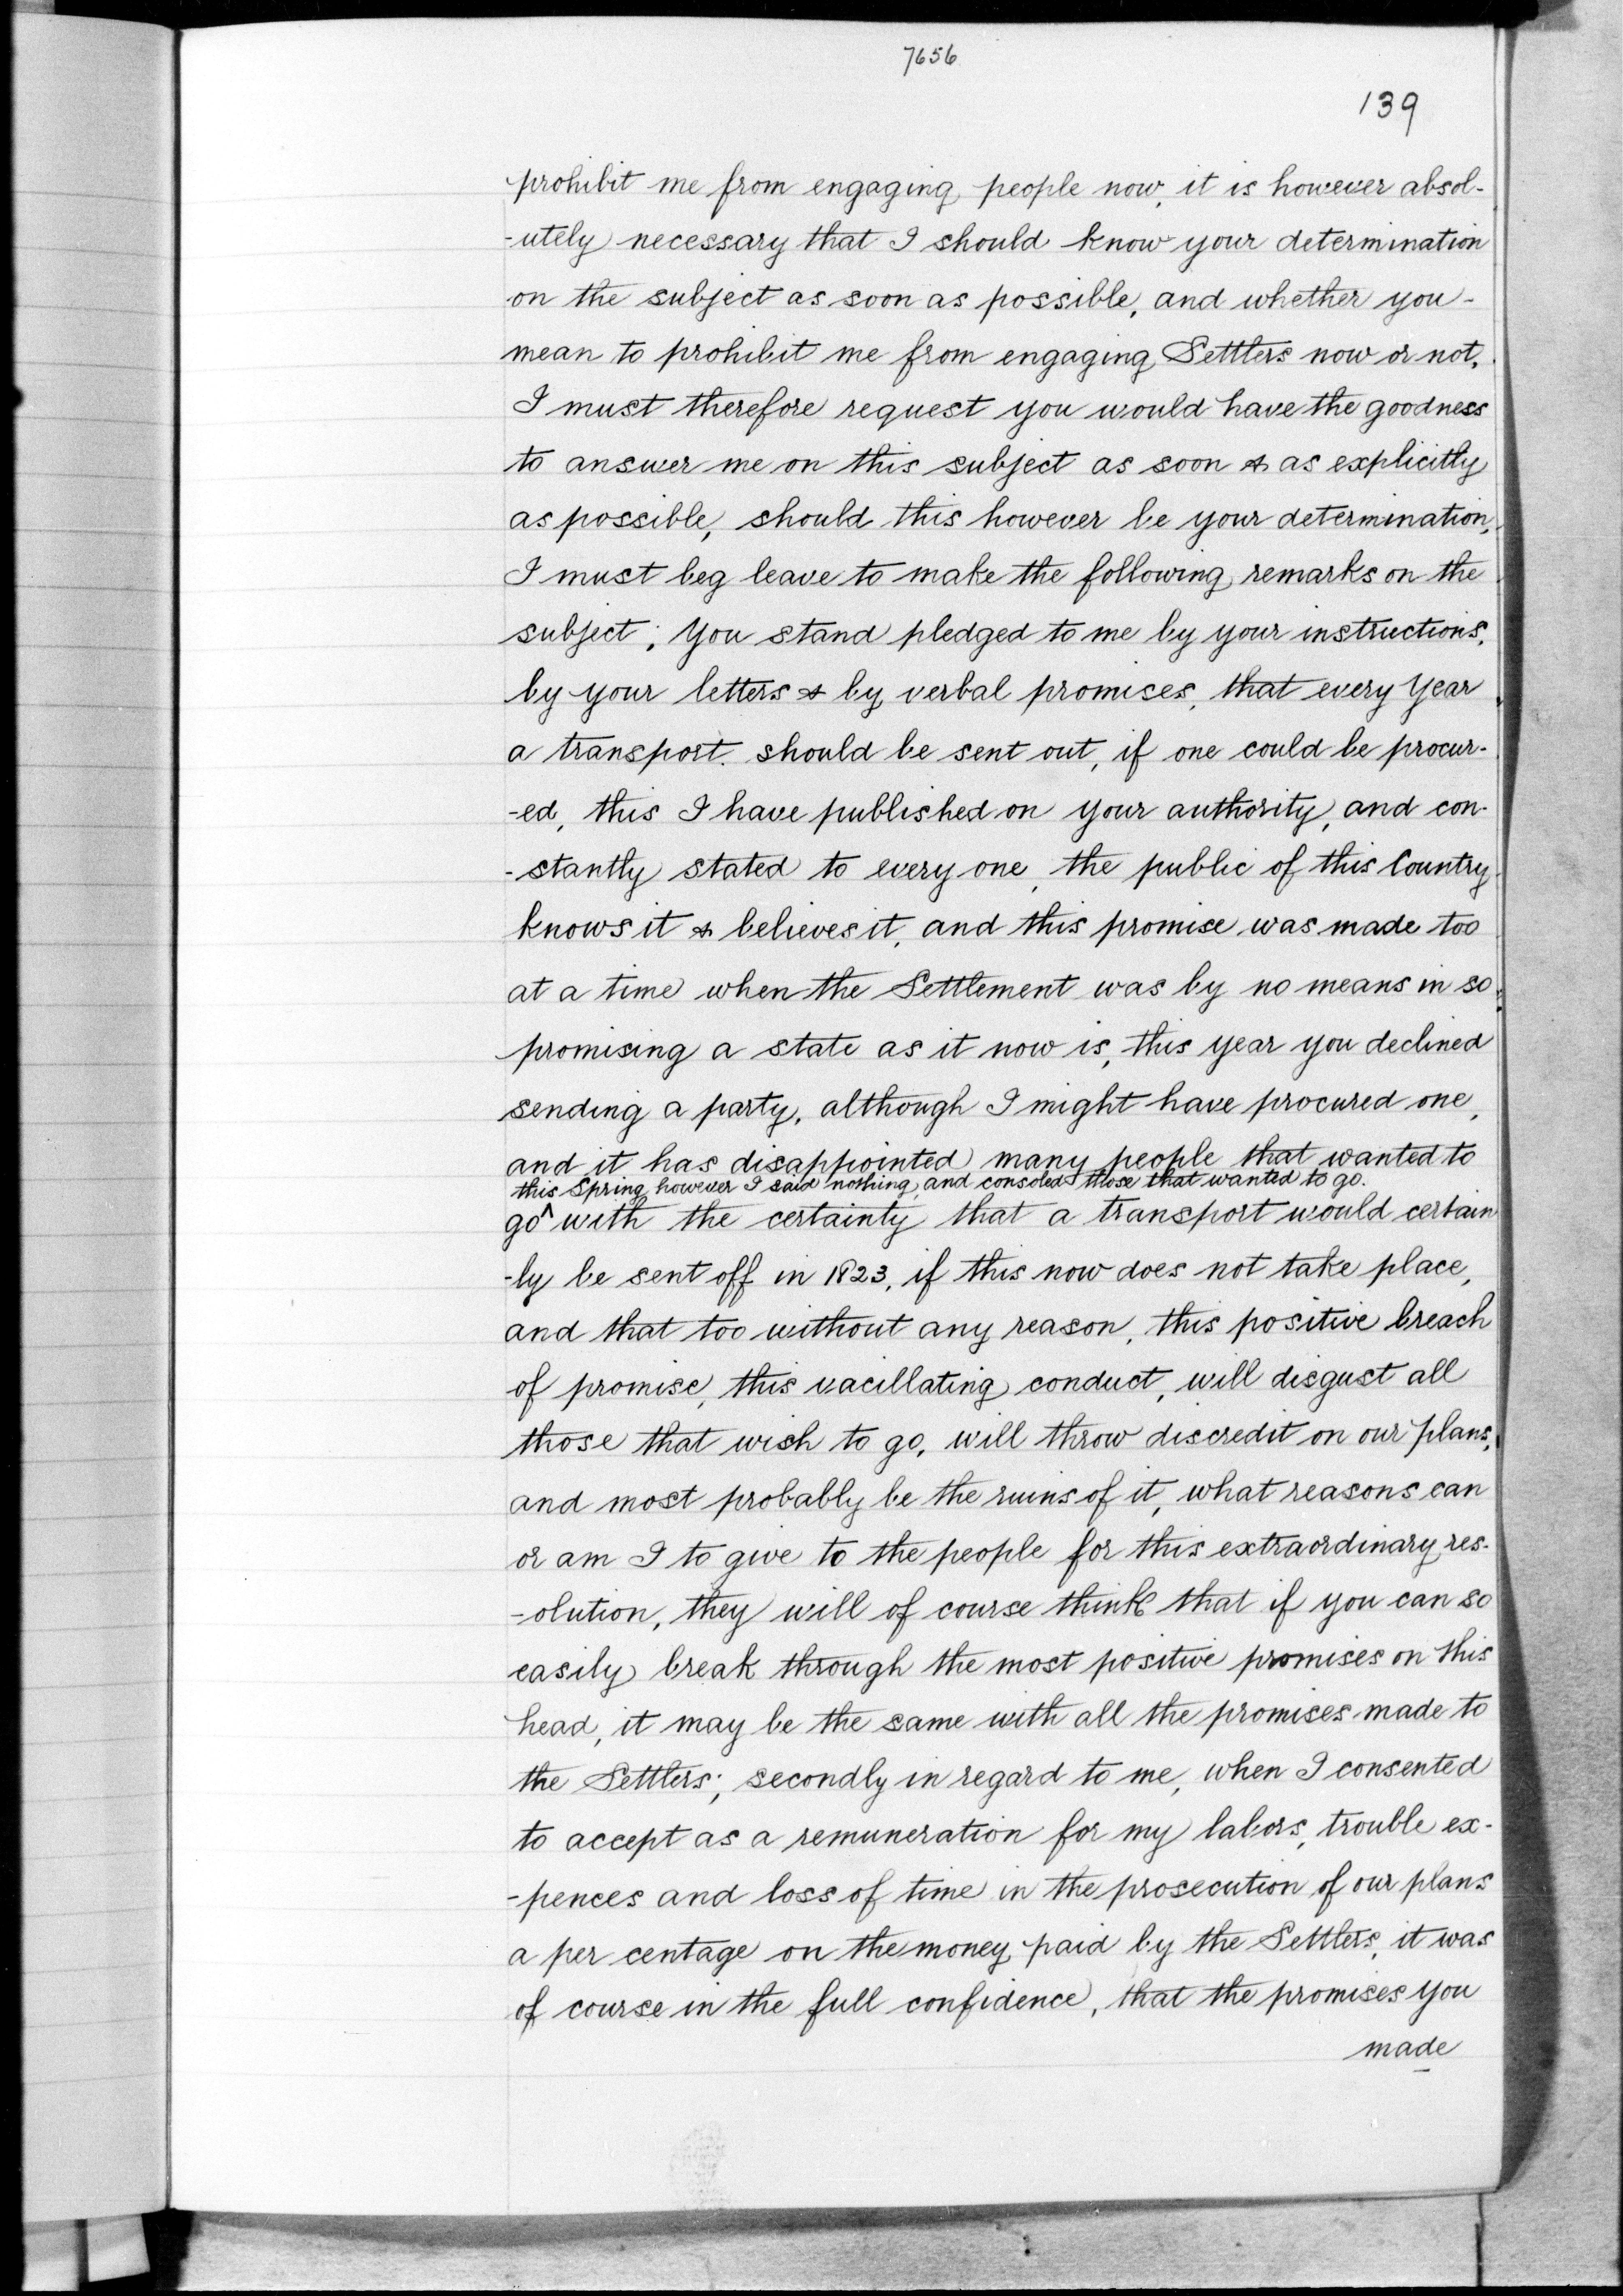 7656
139
prohibit me from engaging people now, it is however absol-
-utely necessary that I should know your determination
on the subject as soon as possible, and whether you -
mean to prohibit me from engaging Settlers now or not.
I must therefore request you would have the goodness
to answer me on this subject as soon & as explicitly
as possible, should this however be your determination,
I must beg leave to make the following remarks on the
subject; You stand pledged to me by your instructions,
by your letters & by verbal promises, that every year
a transport should be sent out, if one could be procur-
-ed, this I have published on your authority, and con-
-stantly stated to every one, the public of this Country
knows it & believes it, and this promise was made too
at a time when the Settlement was by no means in so
promising a state as it now is, this year you declined
sending a party, although I might have procured one,
and it has disappointed many people that wanted to
this Spring, however I said nothing, and consoled those that wanted to go.
go ^ with the certainty that a transport would certain
-ly be sent off in 1823, if this now does not take place,
and that too without any reason, this positive breach
of promise, this vacillating conduct, will disgust all
those that wish to go, will throw discredit on our plans,
and most probably be the ruins of it, what reasons can
or am I to give to the people for this extraordinary res-
-olution, they will of course think that if you can so
easily break through the most positive promises on this
head, it may be the same with all the promises made to
the Settlers; secondly in regard to me, when I consented
to accept as a remuneration for my labors, trouble ex-
-pences and loss of time in the prosecution of our plans
a per centage on the money paid by the Settlers, it was
of course in the full confidence, that the promises you
made